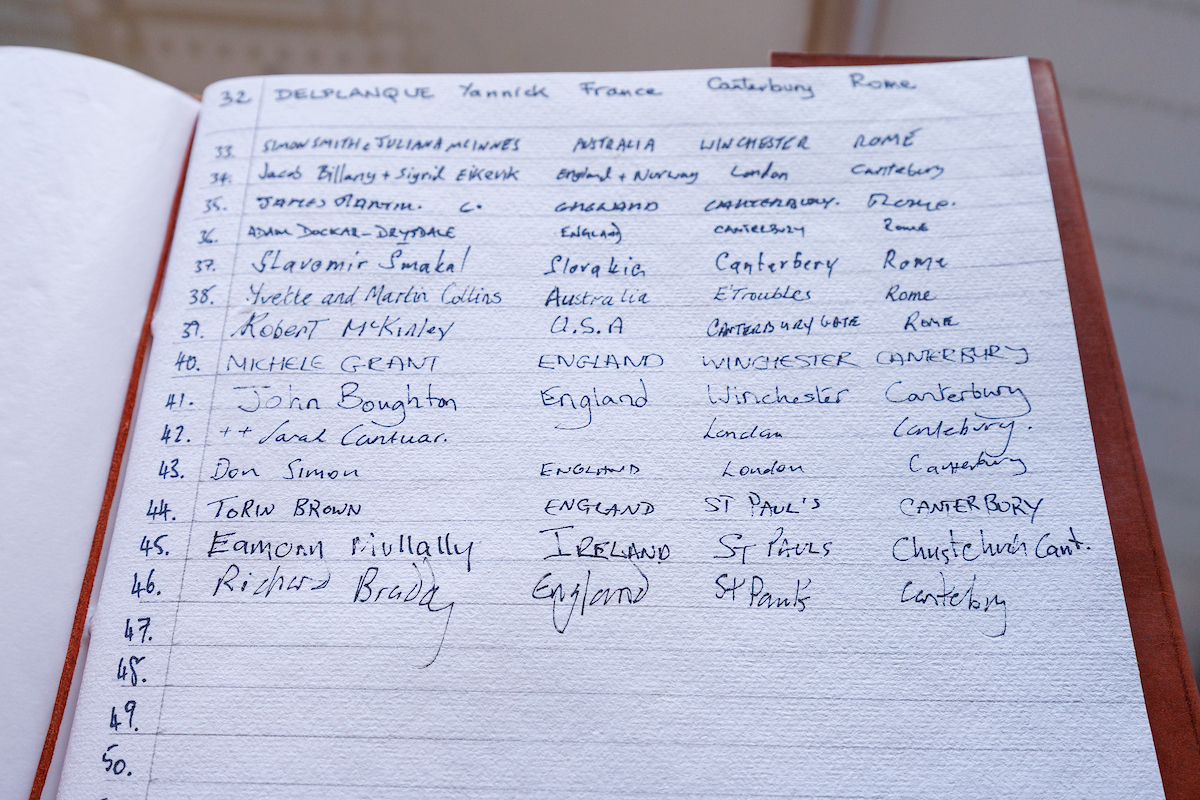 32 DELPLANQUE Yannick France Canterbury Rome
33. SIMON SMITH & JULIANA MCINNES AUSTRALIA WINCHESTER ROME
34. Jacob Billany + Sigrid Eikevik England + Norway London Cantebury
35. JAMES MARTIN. C. ENGLAND CANTERBURY. Rome.
36. ADAM DOCKAR-DRYSDALE ENGLAND CANTERBURY Rome
37. Slavomir Smakal Slovakia Canterbery Rome
38. Yvette and Martin Collins Australia E'Troubles Rome
39. Robert McKinley U.S.A CANTERBURY GATE ROME
40. MICHELE GRANT ENGLAND WINCHESTER CANTERBURY
41. John Boughton England Winchester Canterbury
42. ++ Sarah Cantuar. London Cantebury.
43. Don Simon ENGLAND London Canterbury
44. TORIN BROWN ENGLAND ST PAUL'S CANTERBURY
45. Eamonn Mullally IRELAND ST PAULS Cant.
46. Richard England St Paul's Cantebry
47.
48.
49.
50.